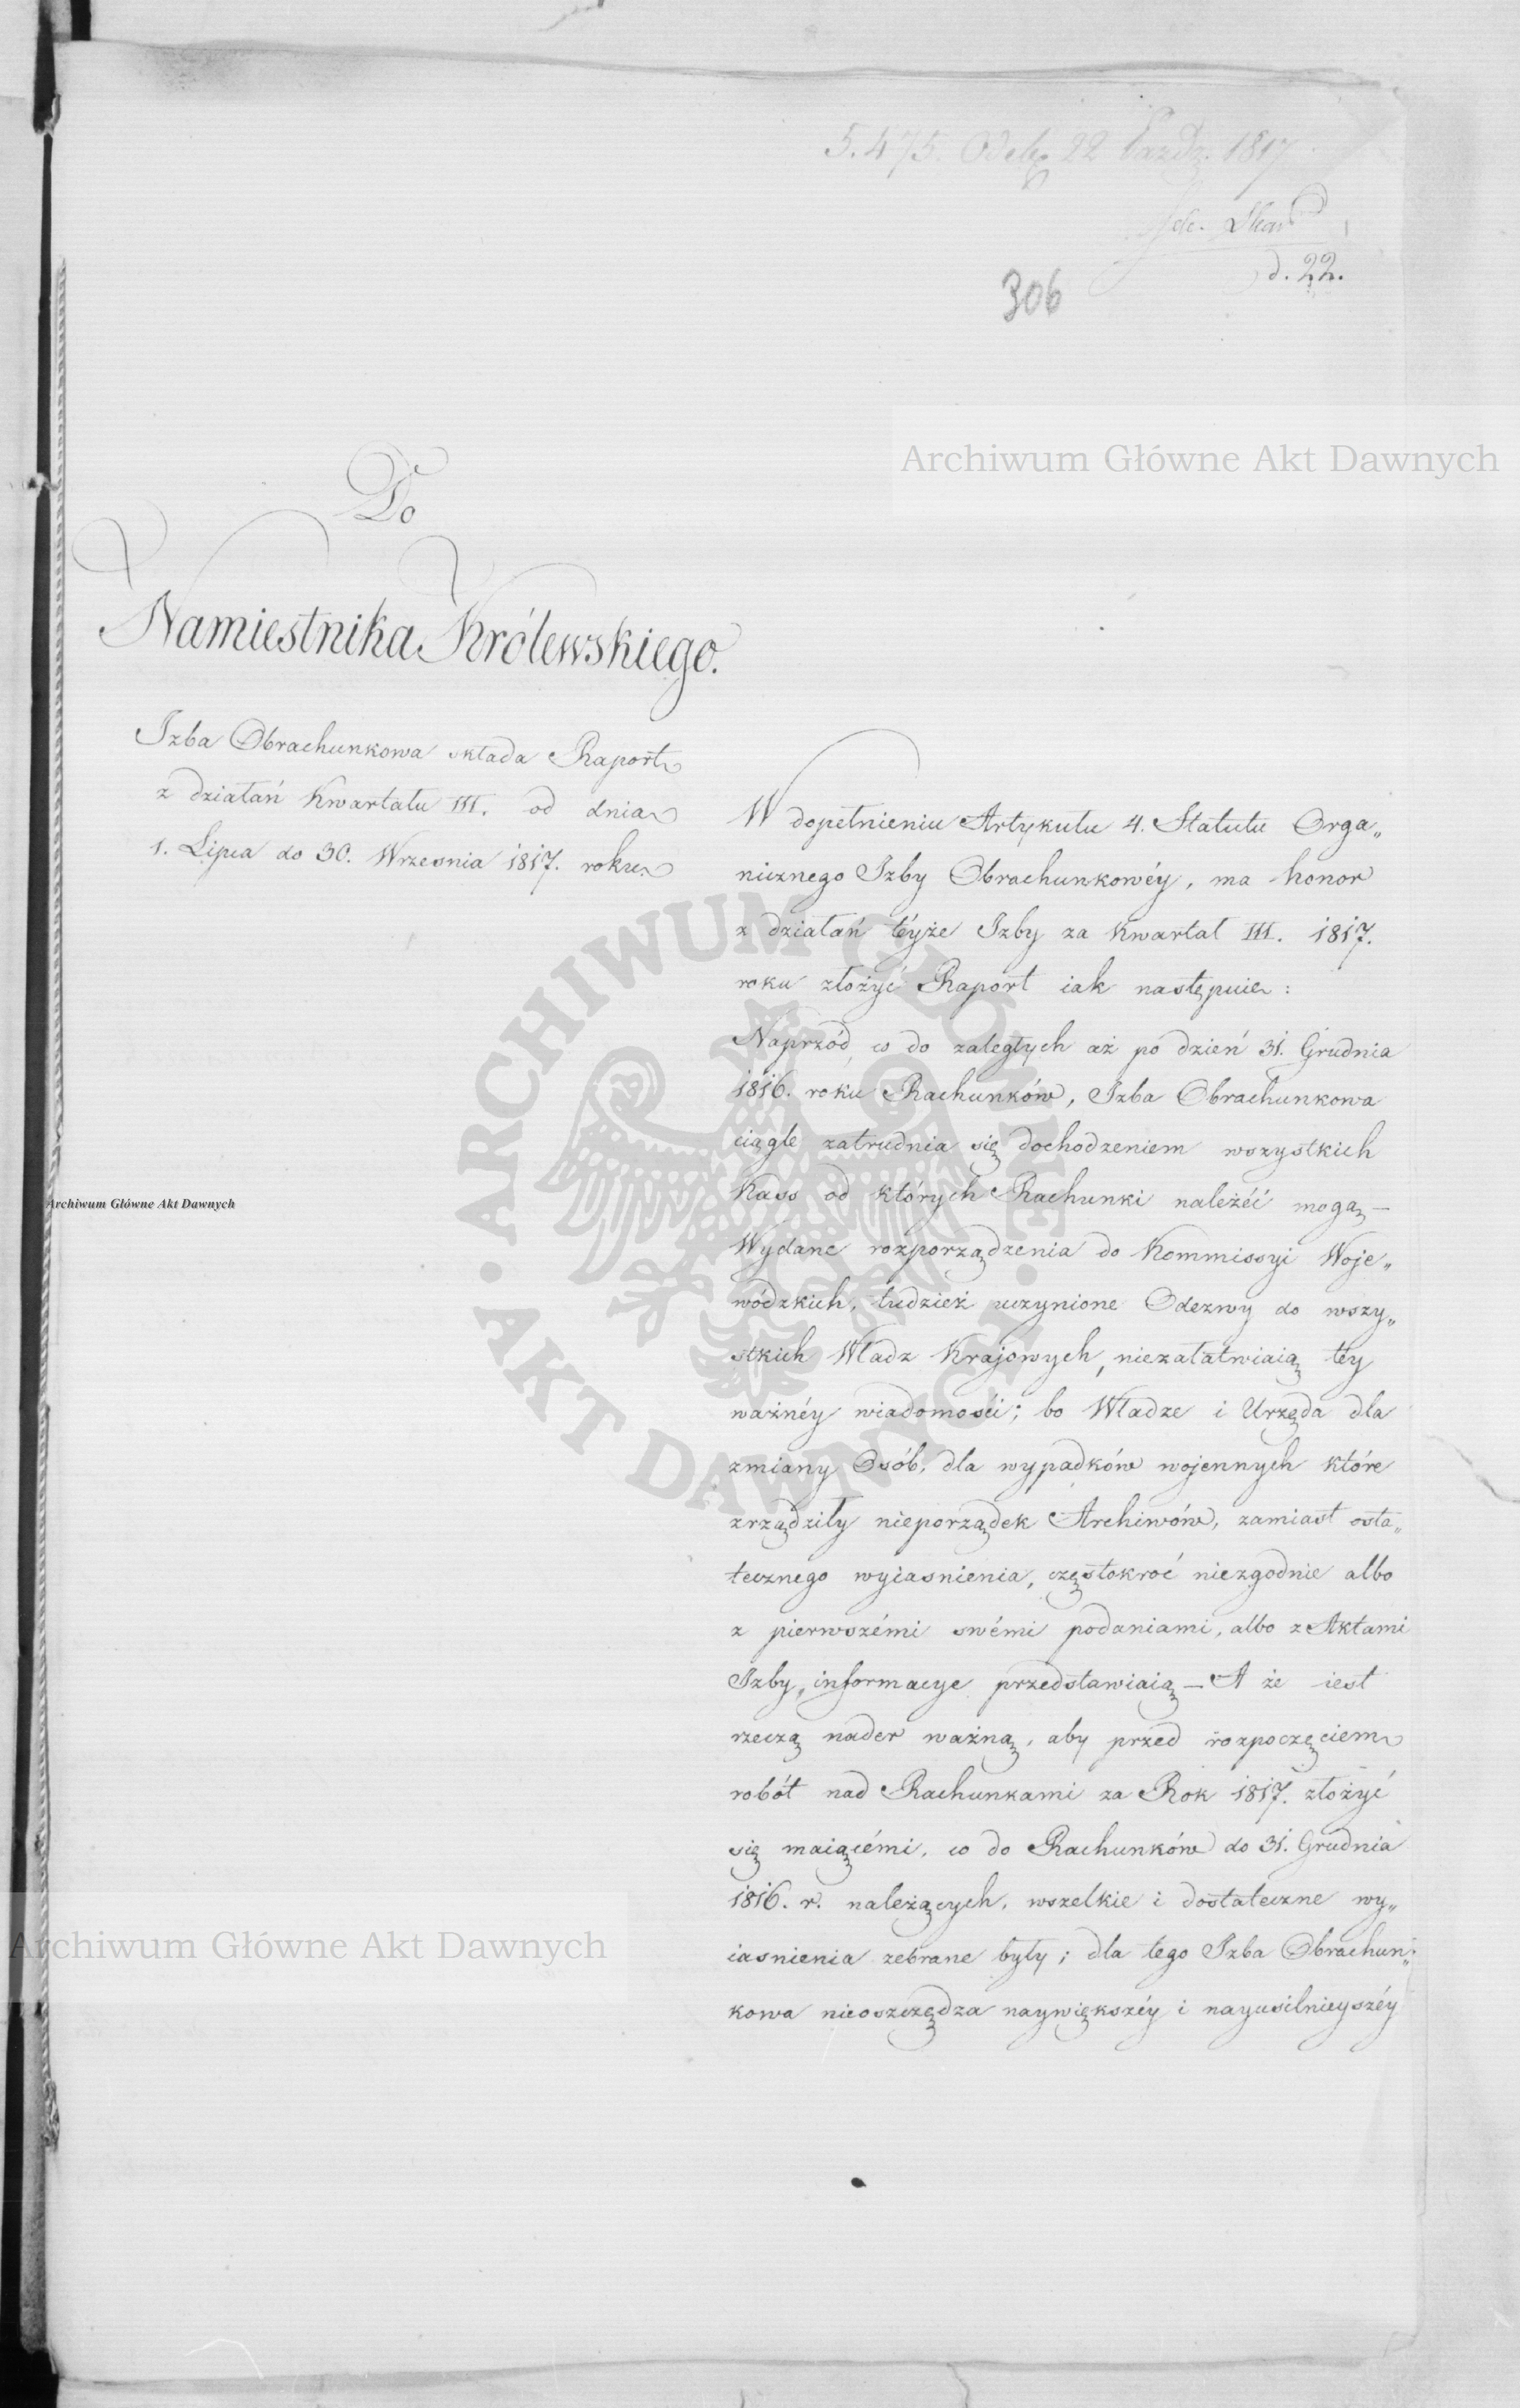 5.475. Odeb. 22 Paźdz. 1817
d. 22.
306
Archiwum Główne Akt Dawnych
Do
Namiestnika Królewskiego.
Izba Obrachunkowa składa Raport
z działań Kwartału III. od dnia
1. Lipca do 30. Wrzesnia 1817. roku
W dopełnieniu Artykułu 4. Statutu Orga„
nicznego Izby Obrachunkowéy, ma honor
z działań téyże Izby za Kwartał III. 1817.
roku złożyć Raport iak następuie:
Naprzód, co do zaległych aż po dzień 31. Grudnia
1816. roku Rachunków, Izba Obrachunkowa
ciągle zatrudnia się dochodzeniem wszystkich
Kass od których Rachunki należéć mogą —
Wydane rozporządzenia do Kommissyi Woje„
wódzkich, tudzież uczynione Odezwy do wszy„
stkich Władz Krajowych, niezałatwiaią téy
ważnéy wiadomości; bo Władze i Urzęda dla
zmiany Osób, dla wypadków wojennych które
zrządziły nieporządek Archiwów, zamiast osta„
tecznego wyiasnienia, częstokroć niezgodnie albo
z pierwszémi swémi podaniami, albo z Aktami
Izby, informacye przedstawiaią — A że iest
rzeczą nader ważną, aby przed rozpoczęciem
robót nad Rachunkami za Rok 1817. złożyć
się maiącémi, co do Rachunków do 31. Grudnia
1816. r. należących, wszelkie i dostateczne wy„
iasnienia zebrane były; dla tego Izba Obrachun„
kowa nieoszczędza naywiększéy i nayusilnieyszéy
ARCHIWUM GŁÓWNE • AKT DAWNYCH •
Archiwum Główne Akt Dawnych
Archiwum Główne Akt Dawnych